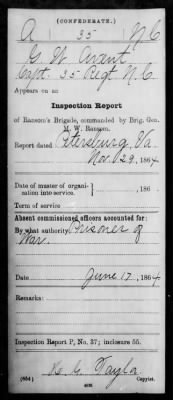 (CONFEDERATE.)
A 35 N C
G. W. Avent
Capt. 35 Regt. N.C.
Appears on an
Inspection Report
of Ransom's Brigade, commanded by Brig. Gen.
M. W. Ransom.
Report dated Petersburg, Va
Nov. 29, 1864
Date of muster of organi-
zation into service. , 186
Term of service
Absent commissioned officers accounted for:
By what authority Prisoner of
War.
Date June 17, 1864
Remarks:
Inspection Report P, No. 37; inclosure 55.
Taylor
(654) Copyist.